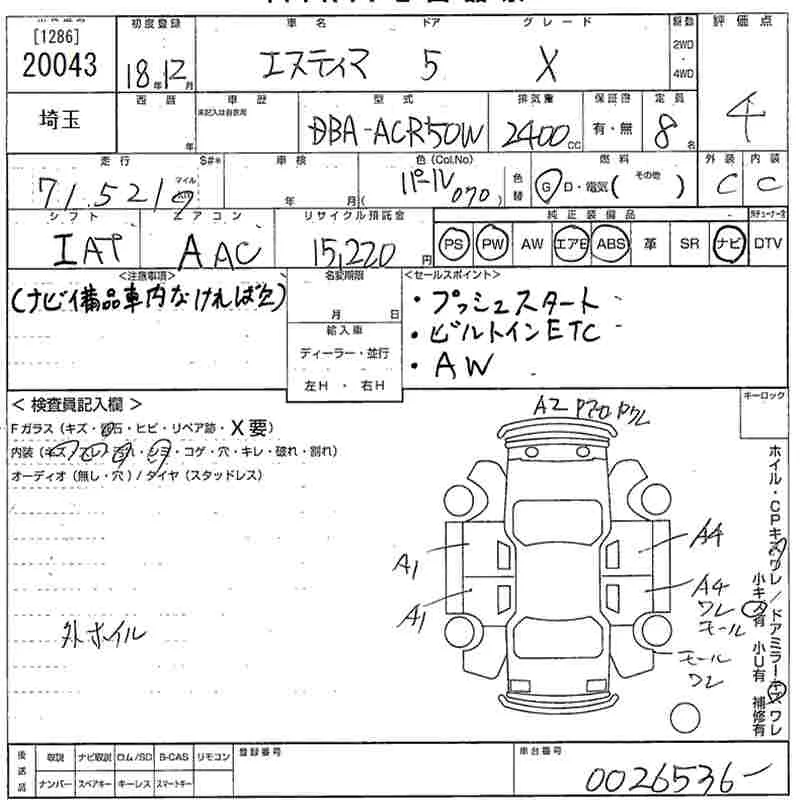 [1286]
20043
初度登録
18年12月
車名
エスティマ
ドア
5
グレード
X
駆動
2WD
・
4WD
評価点
4
埼玉
西暦
年
車歴
未記入は自家用
型式
DBA-ACR50W
排気量
2400cc
保証書
有・無
定員
8名
走行
71,521
マイル
S#*
車検
年 月(
色(Col.No)
パール 070)
色替
燃料
G D・電気(その他 )
外装
C
内装
C
シフト
IAT
エアコン
AAC
リサイクル預託金
15,220円
純正装備品
PS PW AW エアB ABS 革 SR ナビ DTV
<注意事項>
(ナビ備品車内なければ欠)
名変期限
月 日
輸入車
ディーラー・並行
左H・右H
<セールスポイント>
・プッシュスタート
・ビルトインETC
・AW
<検査員記入欄>
Fガラス(キズ・飛石・ヒビ・リペア跡・X要)
内装(キズ・スレ・汚れ・シミ・コゲ・穴・キレ・破れ・割れ)
オーディオ(無し・穴)/タイヤ(スタッドレス)
外ホイル
キーロック
A2
A1
A1
A4
A4
ワレ
モール
モール
ワレ
ホイル・CPキズワレ/ドアミラーキズワレ
小キズ有 小U有 補修有
後送品
取説 ナビ取説 ロム/SD B-CAS リモコン
ナンバー スペアキー キーレス スマートキー
登録番号
車台番号
0026536